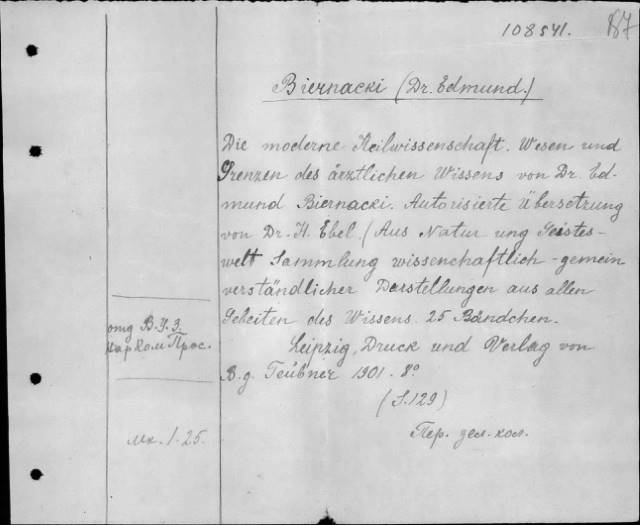 108541. 87
Biernacki (Dr. Edmund.)
Die moderne Heilwissenschaft. Wesen und
Grenzen des ärztlichen Wissens von Dr. Ed-
mund Biernacki. Autorisierte Übersetzung
von Dr. H. Ebel. (Aus Natur ung Geistes-
welt Sammlung wissenchaftlich-gemein
verständlicher Darstellungen aus allen
Gebeiten des Wissens. 25 Bändchen.
Leipzig, Druck und Verlag von
B. g. Teübner 1901. 8°
(S. 129)
Пер. зел. кол.
отд В.У.З.
Нар Ком Прос.
мк. 1-25.